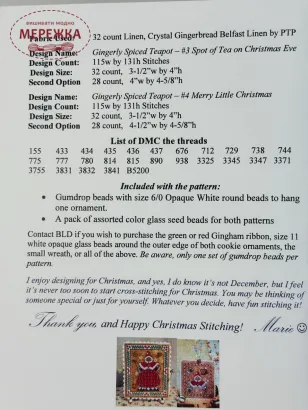 вишивати модно
МЕРЕЖКА
Fabric Used: 32 count Linen, Crystal Gingerbread Belfast Linen by PTP
Design Name: Gingerly Spiced Teapot – #3 Spot of Tea on Christmas Eve
Design Count: 115w by 131h Stitches
Design Size: 32 count, 3-1/2"w by 4"h
Second Option 28 count, 4"w by 4-5/8"h
Design Name: Gingerly Spiced Teapot – #4 Merry Little Christmas
Design Count: 115w by 131h Stitches
Design Size: 32 count, 3-1/2"w by 4"h
Second Option 28 count, 4-1/2"w by 4-5/8"h
List of DMC the threads
155 433 434 435 436 437 676 712 729 738 744
775 777 780 814 815 890 938 3325 3345 3347 3371
3755 3831 3832 3841 B5200
Included with the pattern:
• Gumdrop beads with size 6/0 Opaque White round beads to hang
one ornament.
• A pack of assorted color glass seed beads for both patterns
Contact BLD if you wish to purchase the green or red Gingham ribbon, size 11
white opaque glass beads around the outer edge of both cookie ornaments, the
small wreath, or all of the above. Be aware, only one set of gumdrop beads per
pattern.
I enjoy designing for Christmas, and yes, I do know it's not December, but I feel
it's never too soon to start cross-stitching for Christmas. You may be thinking of
someone special or just for yourself. Whatever you decide, have fun stitching it!
Thank you, and Happy Christmas Stitching! Marie ☺